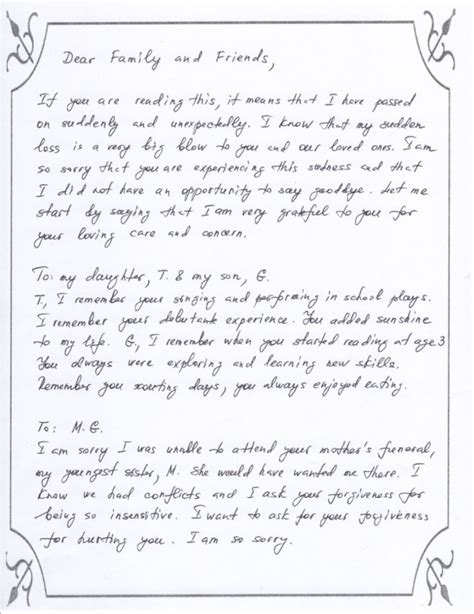 Dear Family and Friends,
If you are reading this, it means that I have passed
on suddenly and unexpectedly. I know that my sudden
loss is a very big blow to you and our loved ones. I am
so sorry that you are experiencing this sadness and that
I did not have an opportunity to say goodbye. Let me
start by saying that I am very grateful to you for
your loving care and concern.
To: my daughter, T. & my son, G.
T, I remember your singing and performing in school plays.
I remember your debutank experience. You added sunshine
to my life. G, I remember when you started reading at age 3
You always were exploring and learning new skills.
Remember you scouting days, you always enjoyed eating.
To: M.G.
I am sorry I was unable to attend your mother's funeral,
my youngest sister, M. She would have wanted me there. I
know we had conflicts and I ask your forgiveness for
being so insensitive. I want to ask for your forgiveness
for hurting you. I am so sorry.